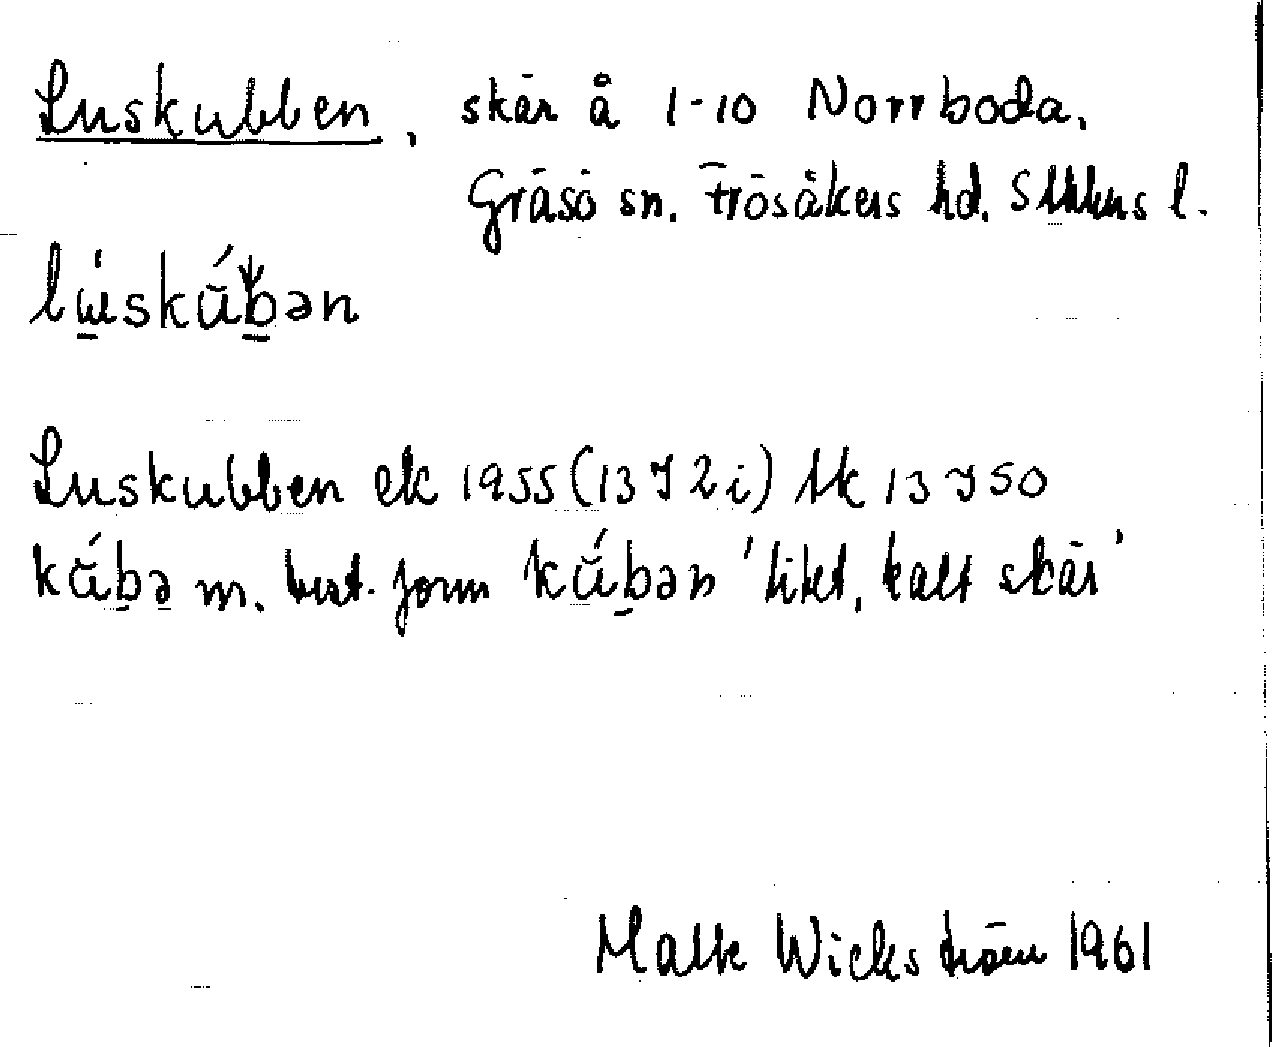 Luskubben, skär å 1-10 Norrboda,
Gräsö sn. Frösåkers hd. Sthlms l.
Luskubben ek 1955 (13 I 2 i) 13 I 50
m. best. form 'litet, kalt skär'
Wickström 1961